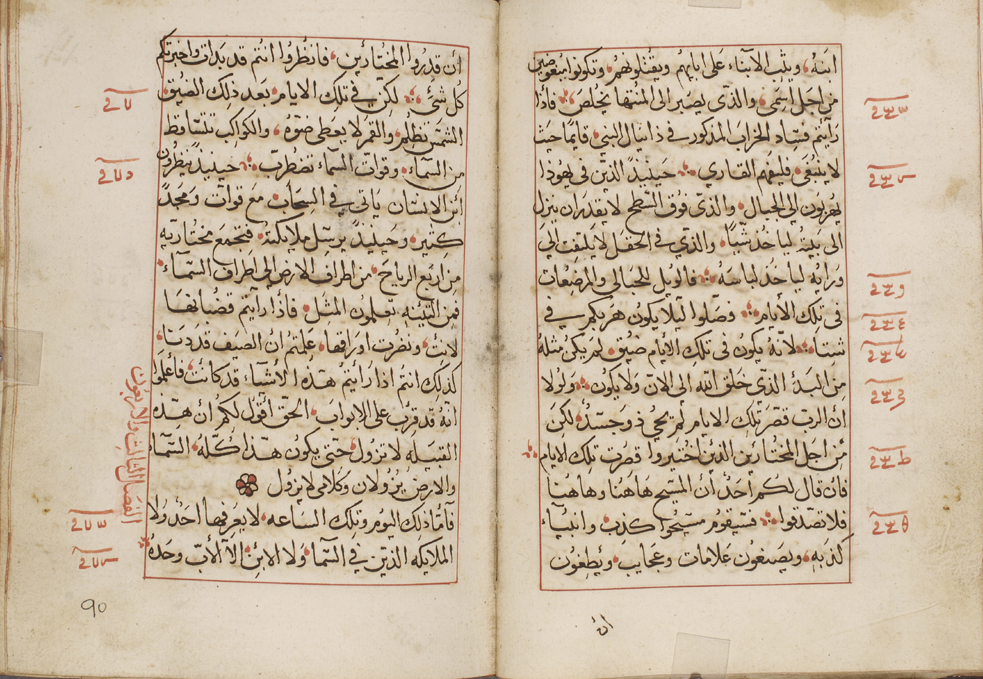 ابنهُ ويثب الأبناء على ابايهم ويقتلونهم وتكونوا مبغوضين
من اجل اسمي والذي يصبر الى المنتها يخلص فاذا
رايتم فساد الخراب المذكور في دانيال النبي قايمًا حيث
لا ينبغي فليفهم القاري حينيذ الذين في يهوذا
يهربون الى الجبال والذي فوق السطح لا يقدر ان ينزل
الى بيته لياخذ شيًا والذي في الحقل لا يلتفت الى
ورايه لياخذ لباسه فالويل للحبالي والمرضعات
في تلك الأيام وصلوا ليلا يكون هربكم في
شتا لانه يكون في تلك الايام ضيق لم يكن مثله
من البدء الذي خلق الله الى الان ولا يكون ولولا
ان الرب قصر تلك الايام لم يحي ذو جسد لكن
من اجل المختارين الذين اختيروا قصرت تلك الأيام
فان قال لكم احد ان المسيح هاهنا وهاهنا
فلا تصدقوا فسيقوم مسيحي كذب وانبياء
كذبه ويصنعون علامات وعجايب ويطغون
ان
أن قدروا المختارين فانظروا انتم قد بدات واخبرتكم
كل شي لكن في تلك الايام بعد ذلك الضيق
الشمس تظلم والقمر لا يعطي ضوه والكواكب تتساقط
من السماء وقوات السماء تضطرب حينيذ ينظرون
ابن الانسان ياتي في السحاب مع قوات ومجد
كثير وحينيذ يرسل ملايكته فتجمع مختاريه
من اربع الرياح من اطراف الارض الى اطراف السماء
فمن التينه تعلمون المثل فاذا رايتم قضبانها
لانت ونضرت اوراقها علمتم ان الصيف قد دنا
كذلك انتم اذا رايتم هذه الأشياء قد كانت فاعلموا
انه قد قرب على الابواب الحق اقول لكم ان هذه
القبيله لا تزول حتى يكون هذا كله السماء
والارض يزولان وكلامي لا يزول
الفصل الثالث والاربعون
فاما ذلك اليوم وتلك الساعه لا يعرفها احد ولا
الملايكه الذين في السما ولا الابن الا الأب وحده
90